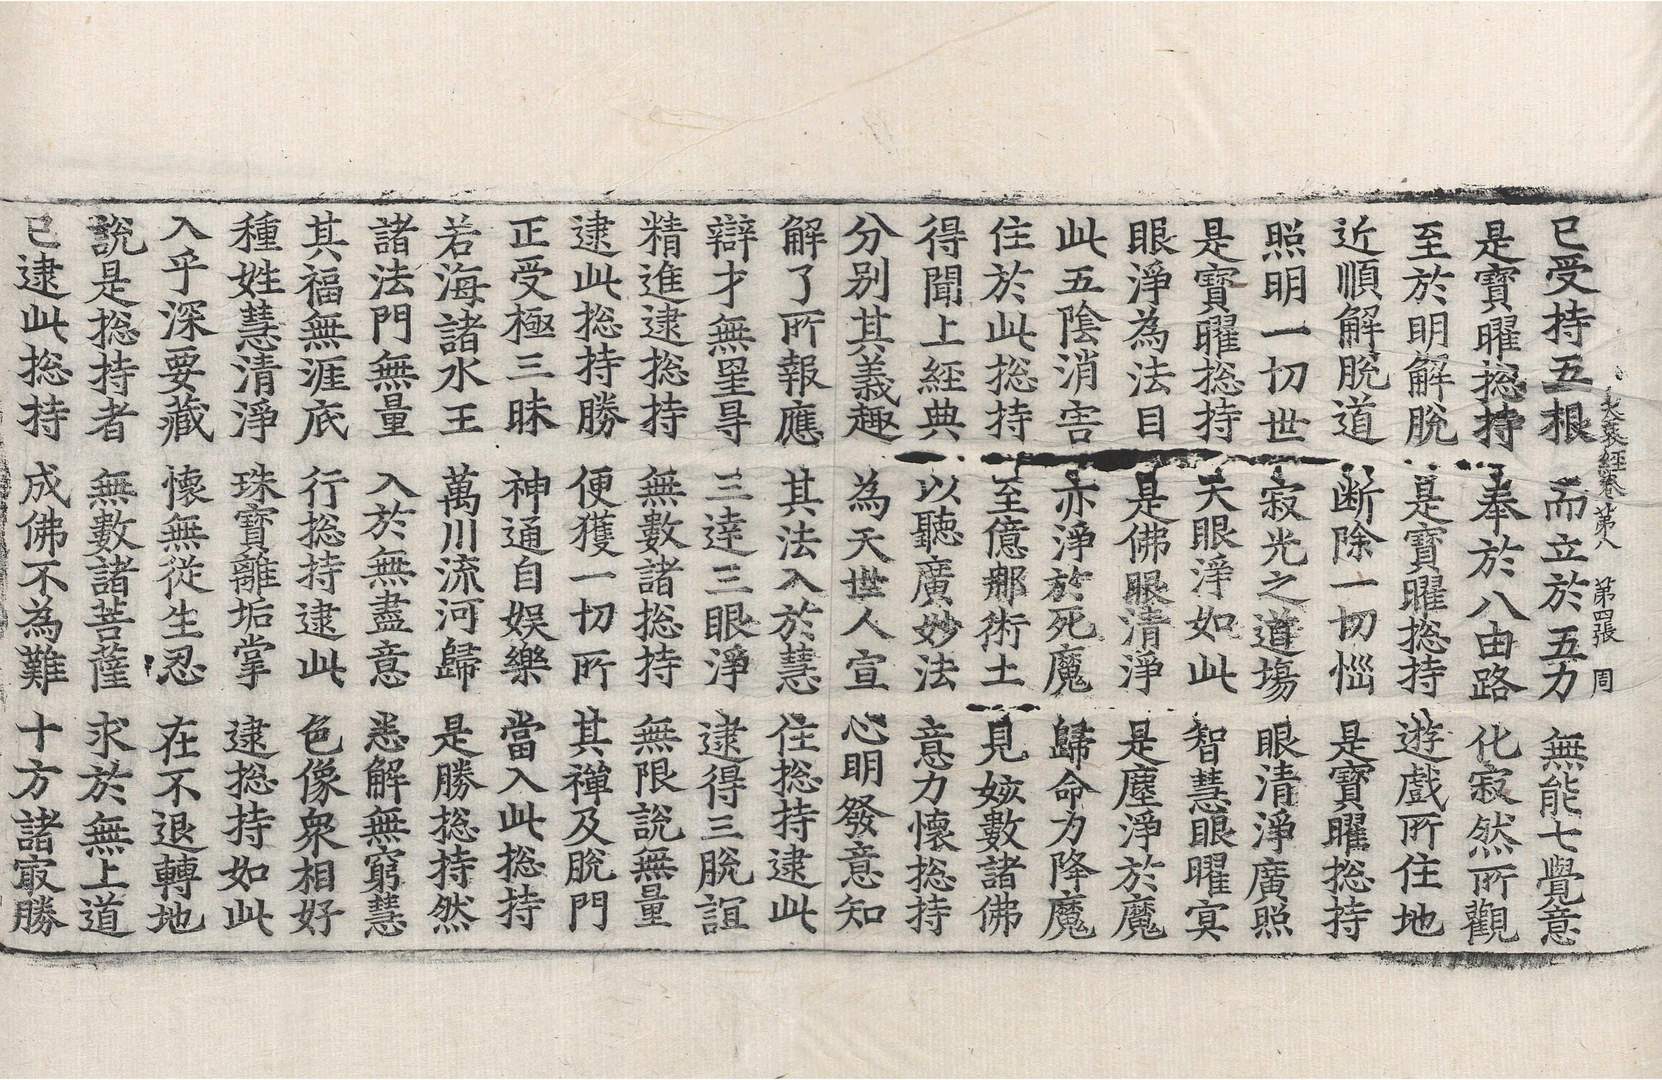 大哀經卷第八 第四張 周
已受持五根 而立於五力 無能七覺意
是寶曜揔持 奉於八由路 化寂然所觀
至於明解脫 是寶曜揔持 遊戲所住地
近順解脫道 断除一切惱 是寶曜揔持
照明一切世 寂光之道場 眼清淨廣照
是寶曜揔持 天眼淨如此 智慧眼曜冥
眼淨為法目 是佛眼清淨 是塵淨於魔
此五陰消害 亦淨於死魔 歸命力降魔
住於此揔持 至億那術土 見姟數諸佛
得聞上經典 以聽廣妙法 意力懷揔持
分別其義趣 為天世人宣 心明發意知
解了所報應 其法入於慧 住揔持逮此
辯才無罣㝵 三達三眼淨 逮得三脫誼
精進逮揔持 無數諸揔持 無限說無量
逮此揔持勝 便獲一切所 其禪及脫門
正受極三昧 神通自娛樂 當入此揔持
若海諸水王 萬川流河歸 是勝揔持然
諸法門無量 入於無盡意 悉解無窮慧
其福無涯底 行揔持逮此 色像衆相好
種姓慧清淨 珠寶離垢掌 逮揔持如此
入乎深要藏 懷無從生忍 在不退轉地
說是揔持者 無數諸菩薩 求於無上道
已逮此揔持 成佛不為難 十方諸冣勝